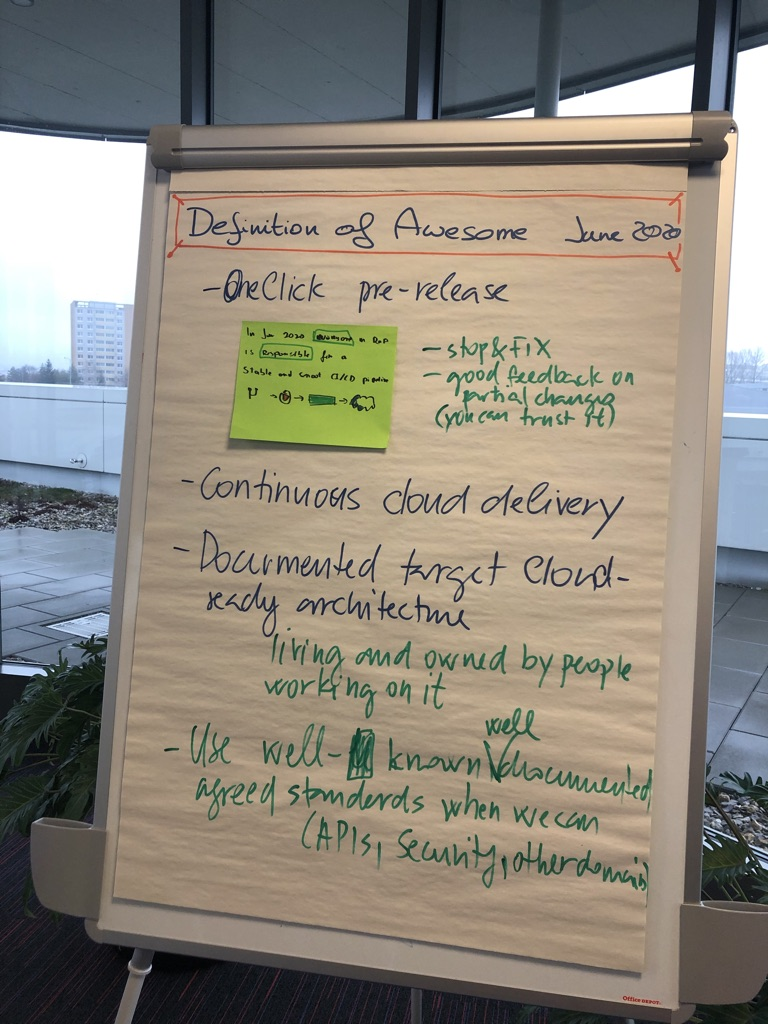 Definition of Awesome June 2020
- OneClick pre-release
In Jun 2020 awesome
is responsible for a
stable and smart CI/CD pipeline
- stop & FIX
- good feedback on
partial changes
(you can trust it)
- Continuous cloud delivery
- Documented target Cloud-
ready architecture
living and owned by people
working on it
well
- Use well- known documented
agreed standards when we can
(APIs, Security, other domain)
Office DEPOT